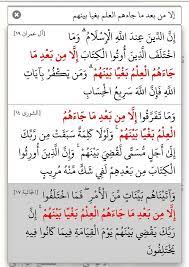 إلا من بعد ما جاءهم العلم بغيا بينهم
آل عمران ١٩
إِنَّ الدِّينَ عِندَ اللَّهِ الْإِسْلَامُ ۗ وَمَا
اخْتَلَفَ الَّذِينَ أُوتُوا الْكِتَابَ إِلَّا مِن بَعْدِ مَا
جَاءَهُمُ الْعِلْمُ بَغْيًا بَيْنَهُمْ ۗ وَمَن يَكْفُرْ بِآيَاتِ
اللَّهِ فَإِنَّ اللَّهَ سَرِيعُ الْحِسَابِ
الشورى ١٤
وَمَا تَفَرَّقُوا إِلَّا مِن بَعْدِ مَا جَاءَهُمُ
الْعِلْمُ بَغْيًا بَيْنَهُمْ ۚ وَلَوْلَا كَلِمَةٌ سَبَقَتْ مِن رَّبِّكَ
إِلَىٰ أَجَلٍ مُّسَمًّى لَّقُضِيَ بَيْنَهُمْ ۚ وَإِنَّ الَّذِينَ أُورِثُوا
الْكِتَابَ مِن بَعْدِهِمْ لَفِي شَكٍّ مِّنْهُ مُرِيبٍ
الجاثية ١٧
وَآتَيْنَاهُم بَيِّنَاتٍ مِّنَ الْأَمْرِ ۖ فَمَا اخْتَلَفُوا
إِلَّا مِن بَعْدِ مَا جَاءَهُمُ الْعِلْمُ بَغْيًا بَيْنَهُمْ ۚ إِنَّ
رَبَّكَ يَقْضِي بَيْنَهُمْ يَوْمَ الْقِيَامَةِ فِيمَا كَانُوا فِيهِ
يَخْتَلِفُونَ